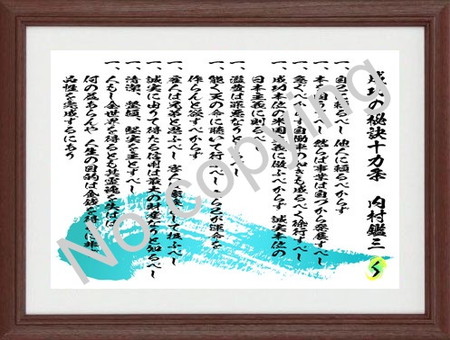 成功の秘訣十カ条　内村鑑三
一、自己に頼るべし　他人に頼るべからず
一、本を固うすべし　然らば事業は自づから発展すべし
一、急ぐべからず　自働車の　きも成るべく徐行すべし
一、成功本位の米国主義に倣ふべからず　誠実本位の
日本主義に則るべし
一、濫費は罪悪なりと　べし
一、能く天の命に聴いて行ふべし　自ら己が運命を
作らんと欲すべからず
一、雇人は兄弟と思ふべし　客人は家族として扱ふべし
一、誠実に由りて得たる信用は最大の財産なりと知るべし
一、清潔、整頓、堅実を主とすべし
一、人もし全世界を得るとも其霊魂を失はば
何の益あらんや　人生の目的は金銭を得るに非ず
品性を完成するにあり
No Copying